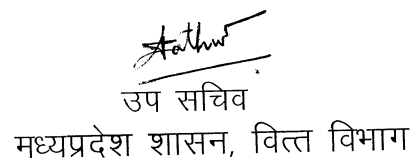 उप सचिव
मध्यप्रदेश शासन, वित्त विभाग